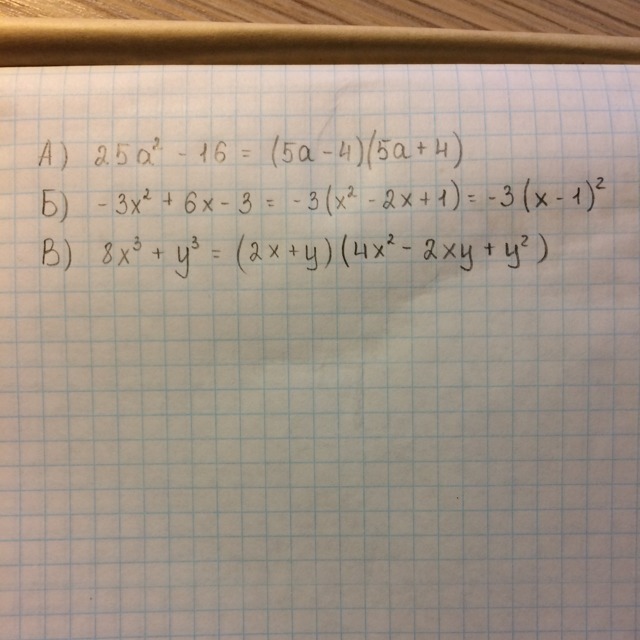 А) 25a² - 16 = (5a - 4)(5a + 4)
Б) -3x² + 6x - 3 = -3(x² - 2x + 1) = -3(x - 1)²
В) 8x³ + y³ = (2x + y)(4x² - 2xy + y²)